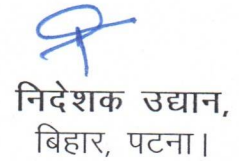 निदेशक उद्यान,
बिहार, पटना।